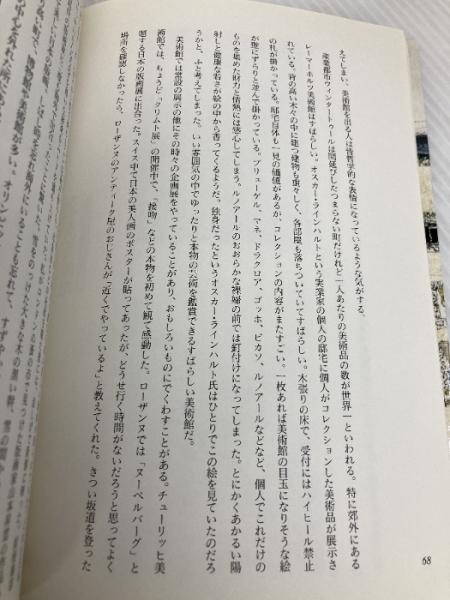 えてしまい、美術館を出る人は皆哲学的な表情になっているような気がする。
産業都市ウィンタートゥールは間延びしたつまらない町だけど一人あたりの美術品の数が世界一といわれる。特に郊外にある
レーマーホルツ美術館はすばらしい。オスカー・ラインハルトという実業家の個人の邸宅に個人がコレクションした美術品が展示さ
れている。背の高い木々の中に建つ建物も重々しく、各部屋も落ちついていてすばらしい。木張りの床で、受付にはハイヒール禁止
の札が掛っている。邸宅自体も一見の価値があるが、コレクションの内容がまたすごい。一枚あれば美術館の目玉になりそうな絵
が壁にずらりと並んで掛かっている。ブリューゲル、マネ、ドラクロア、ゴッホ、ピカソ、ルノアールなどなど、個人でこれだけの
ものを集めた財力と情熱には感心してしまう。ルノアールのおおらかな裸婦の前では釘付けになってしまった。とにかくあかるい陽
射しと健康な若さが絵の中から香ってくるようだ。独身だったというオスカー・ラインハルト氏はひとりでこの絵を見ていたのだろ
うかと、ふと考えてしまう。いい雰囲気の中でゆったりと本物の芸術を鑑賞できるすばらしい美術館だ。
美術館では常設の展示の他にその時々の企画展をやっていることがあり、おもしろいものにでくわすことがある。チューリッヒ美
術館では、ちょうど「クリムト展」の開催中で、「接吻」などの本物を初めて観て感動した。ローザンヌでは「ヌーベルバーグ」と
題する日本の版画展に出合った。スイス中で日本の美人画のポスターが貼ってあったが、どうせ行く時間がないだろうと思ってよく
場所を確認しなかったら、ローザンヌのアンティーク屋のおじさんが「近くでやっているよ」と教えてくれた。きつい坂道を登った
68